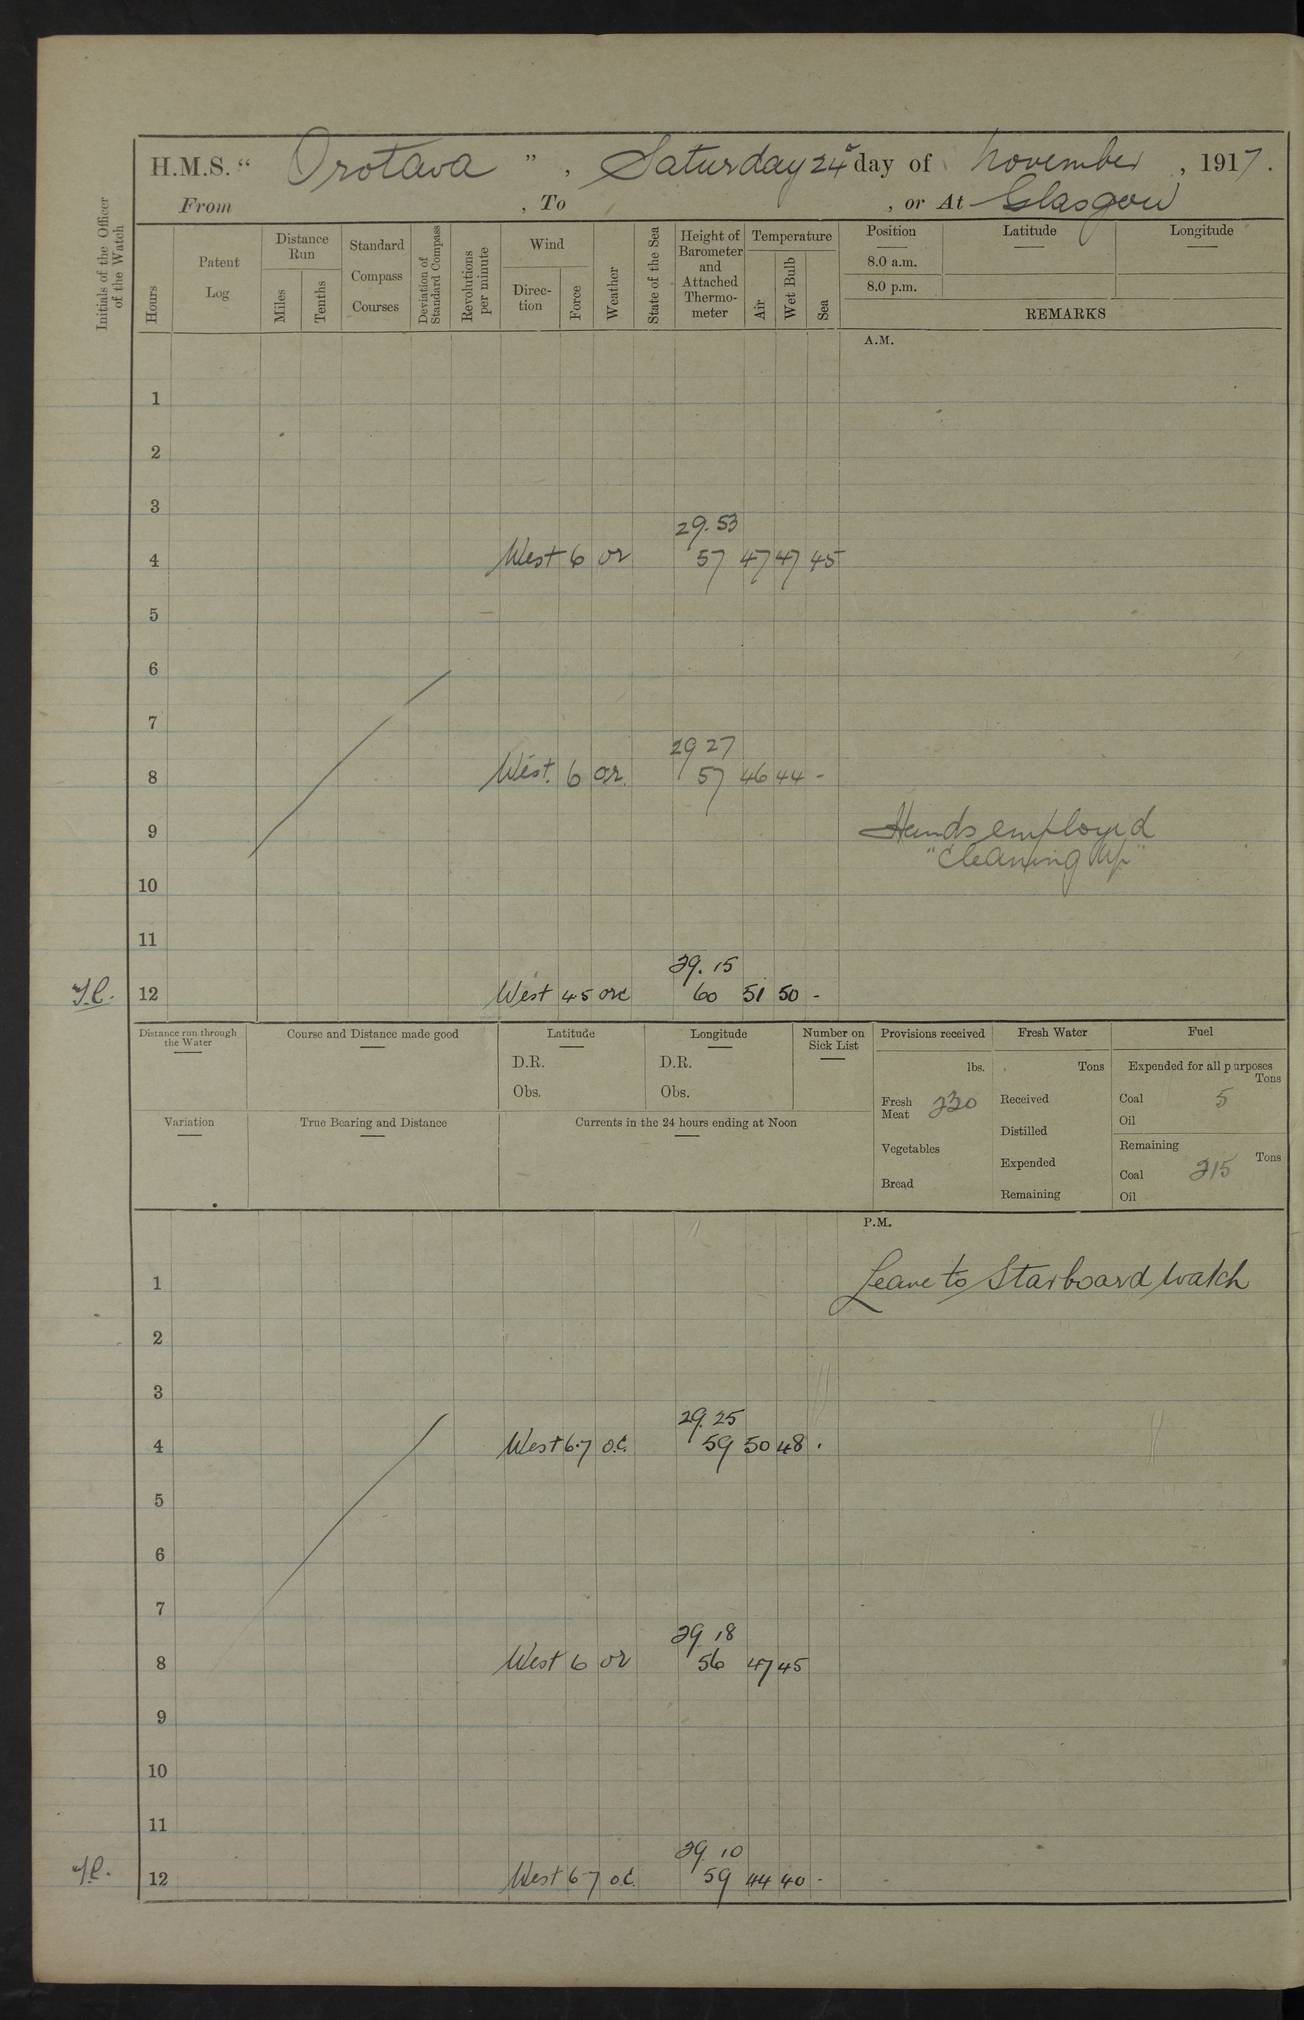 H.M.S. “ Orotava ”, Saturday 24th day of November, 1917.
From , To , or At Glasgow
Initials of the Officer of the Watch
Hours
Patent Log
Distance Run
Miles
Tenths
Standard Compass Courses
Deviation of Standard Compass
Revolutions per minute
Wind
Direction
Force
Weather
State of the Sea
Height of Barometer and Attached Thermometer
Temperature
Air
Wet Bulb
Sea
Position
8.0 a.m.
8.0 p.m.
Latitude
Longitude
REMARKS
A.M.
1
2
3
29.53
4 West 6 or 57 47 47 45
5
6
7
29 27
8 West. 6 or. 57 46 44 -
9 Hands employed
"Cleaning Up"
10
11
29. 15
12 West 4.5 orc 60 51 50 -
Distance run through the Water
Course and Distance made good
Latitude
D.R.
Obs.
Longitude
D.R.
Obs.
Number on Sick List
Variation
True Bearing and Distance
Currents in the 24 hours ending at Noon
Provisions received
lbs.
Fresh Meat 220
Vegetables
Bread
Fresh Water
Tons
Received
Distilled
Expended
Remaining
Fuel
Expended for all purposes
Tons
Coal 5
Oil
Remaining
Tons
Coal 215
Oil
P.M.
1 Leave to Starboard Watch
2
3
29.25
4 West 6.7 o.c. 59 50 48 .
5
6
7
29 18
8 West 6 or 56 47 45
9
10
11
29. 10
12 West 6-7 o.c. 59 44 40 -